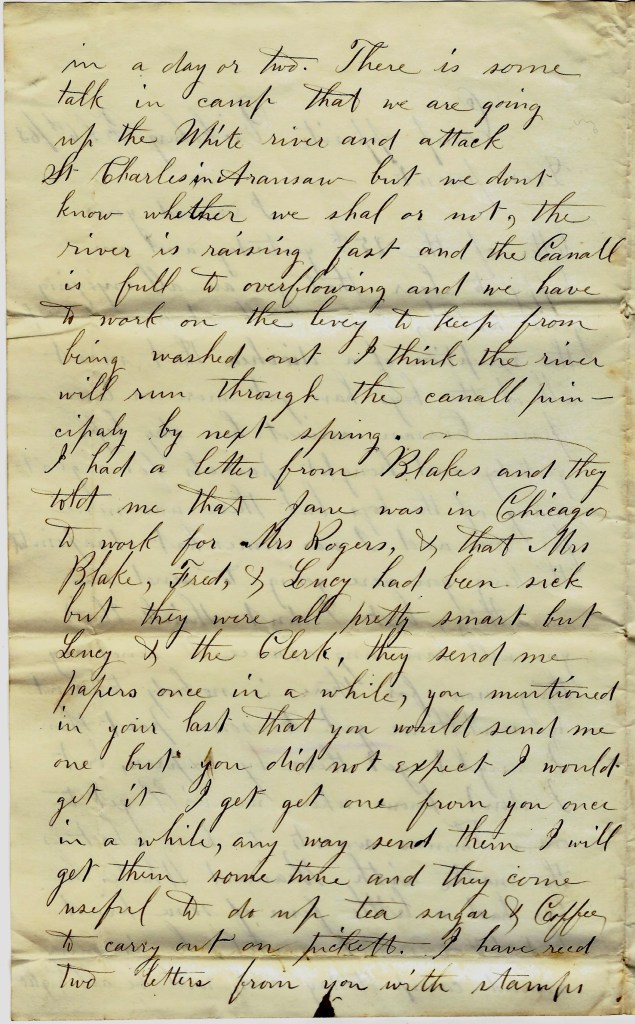 in a day or two. There is some
talk in camp that we are going
up the White river and attack
St Charles in Aransaw but we dont
know whether we shal or not, the
river is raising fast and the Canall
is full to overflowing and we have
to work on the levey to keep from
being washed out I think the river
will run through the canall prin-
cipaly by next spring.
I had a letter from Blakes and they
told me that Jane was in Chicago
to work for Mrs Rogers, & that Mrs
Blake, Fred, & Lucy had been sick
but they were all pretty smart but
Lucy & the Clerk, they send me
papers once in a while, you mentioned
in your last that you would send me
one but you did not expect I would
get it I get get one from you once
in a while, any way send them I will
get them some time and they come
useful to do up tea sugar & Coffee
to carry out on pickett. I have recd
two letters from you with stamps